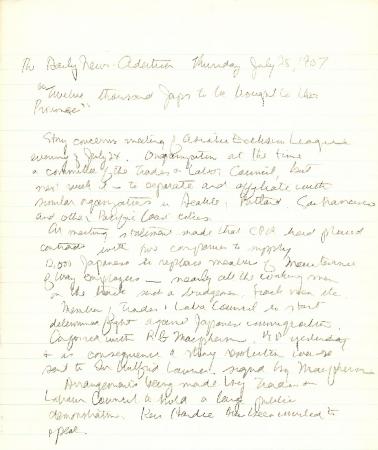 The Daily News-Advertiser Thursday July 25, 1907
"Twelve thousand Japs to be brought to this
Province"
Story concerns meeting of Asiatic Exclusion League
evening of July 24. Organization at this time
a committee of the Trades & Labor Council, but
next week is to separate and affiliate with
similar organizations in Seattle, Portland, San Francisco
and other Pacific Coast cities.
At meeting statement made that CPR had placed
contracts with two companies to supply
12,000 Japanese to replace members of Maintenance
of Way employees — nearly all the working men
on the track such as bridgemen, track men etc.
Members Trades & Labor Council to start
determined fight against Japanese immigration.
Conferred with R.G. Macpherson, M.P. yesterday
& as consequence a strong resolution
sent to Sir Wilfrid Laurier signed by Macpherson
Arrangements being made by Trades &
Labour Council to hold a large public
demonstration. Keir Hardie has been invited to
speak.